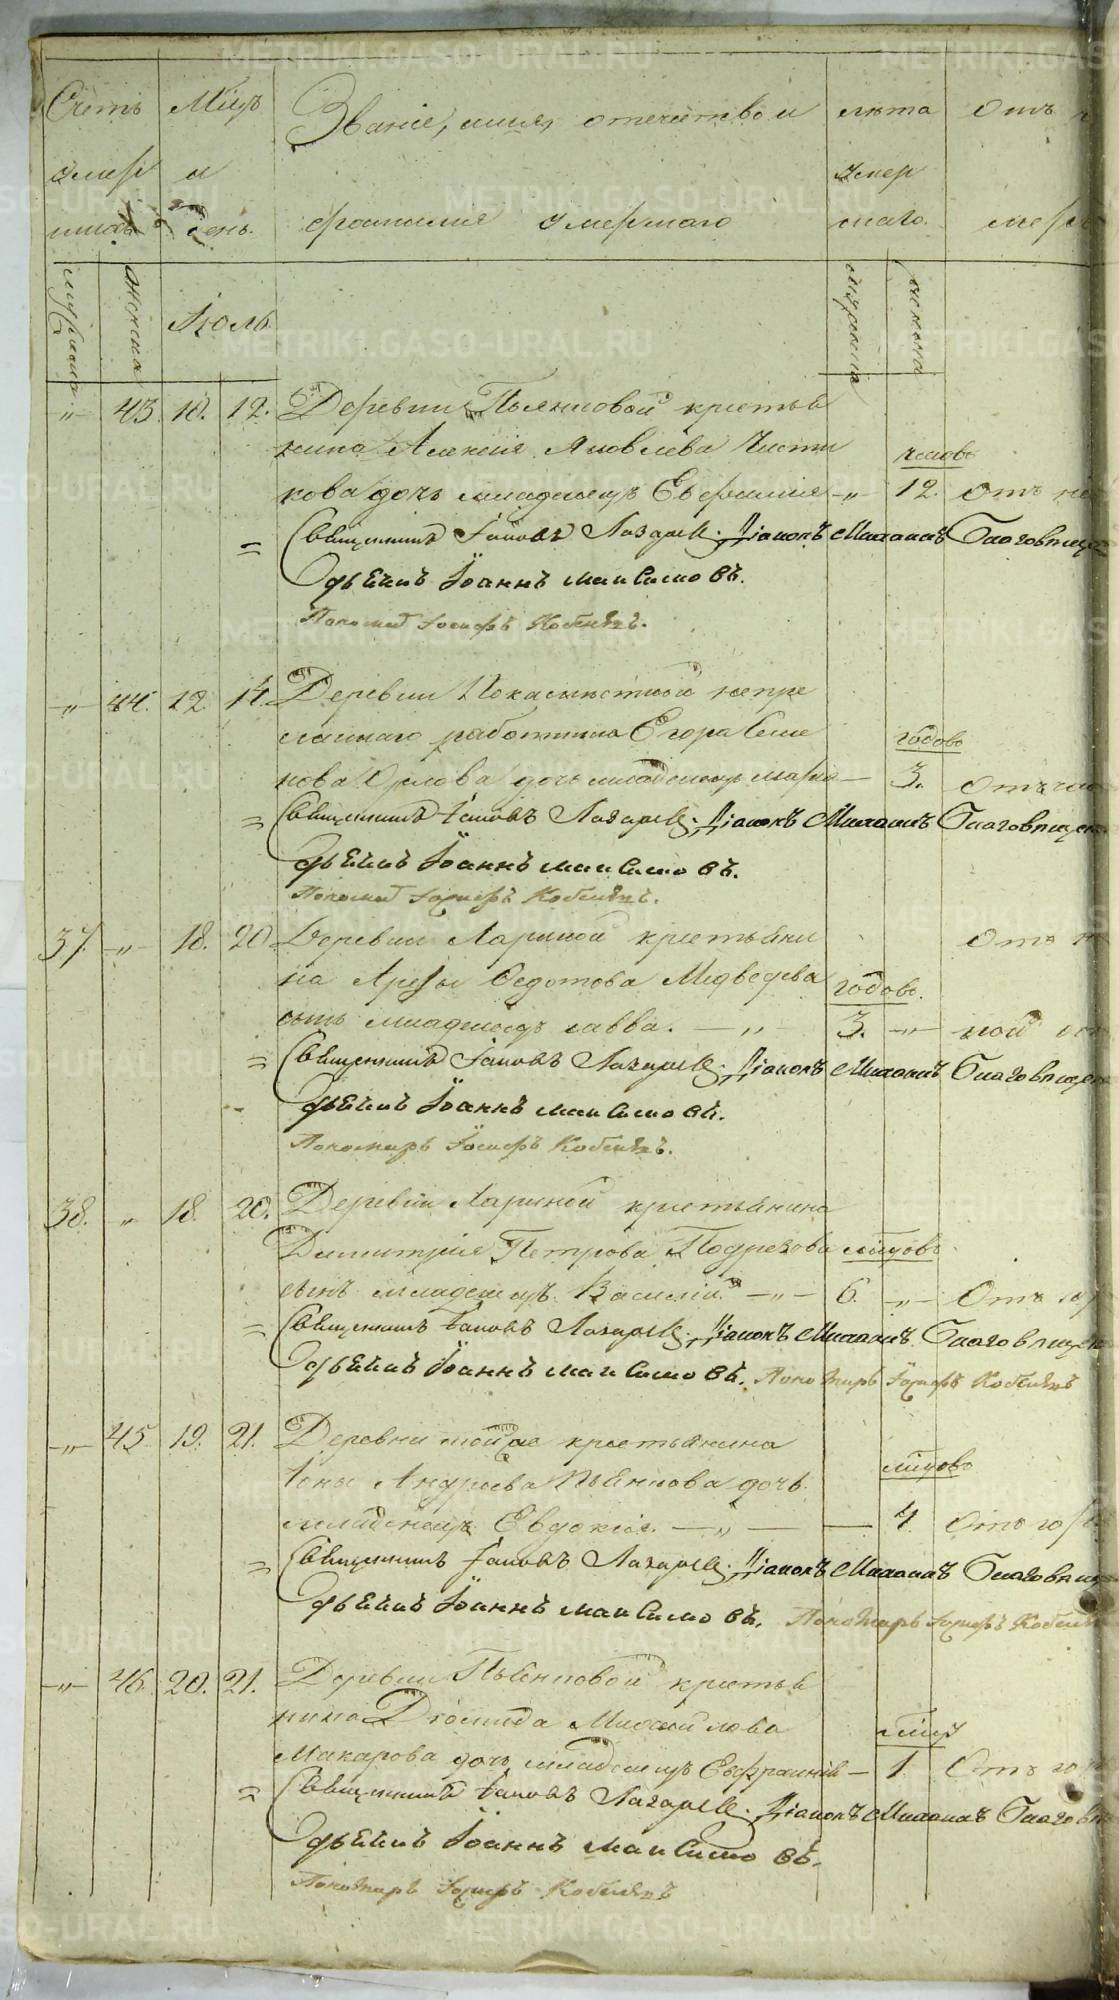 Счетъ Мцъ Званіе, имя, отечество и лѣта Отъ
умер и умер
шихъ день. фамилія умершаго шаго. меръ
мужеска женска Іюль мужеска женска
" 43. 10. 12. Деревни Пьянковой крестья
нина Алексія Яковлева Чисти часовъ
кова дочь младенецъ Евфимія " 12. отъ
= Священникъ Іаковъ Лазаревъ. Діаконъ Михаилъ Благовѣщен
Дьячикъ Іоаннъ Максимовъ.
Пономарь Іосифъ Кобелевъ.
" 44. 12. 14. Деревни непре
меннаго работника Егора Семе годовъ
нова Орлова дочь младенецъ Марія 3. Отъ
= Священникъ Іаковъ Лазаревъ. Діаконъ Михаилъ Благовѣщен
Дьячикъ Іоаннъ Максимовъ.
Пономарь Іосифъ Кобелевъ.
37. " 18. 20. Деревни Лариной крестьяни Отъ
на Арефы Федотова Медведева годовъ.
сынъ младенецъ Савва. " 3. " ной
= Священникъ Іаковъ Лазаревъ. Діаконъ Михаилъ Благовѣщен
Дьячикъ Іоаннъ Максимовъ.
Пономарь Іосифъ Кобелевъ.
38. " 18. 20. Деревни Лариной крестьянина
Димитрія Петрова Подрезова мцовъ.
сынъ младенецъ Василій " 6. " Отъ
= Священникъ Іаковъ Лазаревъ. Діаконъ Михаилъ Благовѣщен
Дьячикъ Іоаннъ Максимовъ. Пономарь Іосифъ Кобелевъ
" 45 19. 21. Деревни той же крестьянина
Іоны Андреева Пьянкова дочь мцовъ
младенецъ Евдокія. " 4. Отъ
= Священникъ Іаковъ Лазаревъ. Діаконъ Михаилъ Благовѣщ
Дьячикъ Іоаннъ Максимовъ. Пономарь Іосифъ Кобелевъ
" 46. 20. 21. Деревни Пьянковой крестья
нина Діомида Михайлова мцъ
Макарова дочь младенецъ Евфросинія 1. Отъ
= Священникъ Іаковъ Лазаревъ. Діаконъ Михаилъ Благовѣ
Дьячикъ Іоаннъ Максимовъ.
Пономарь Іосифъ Кобелевъ
METRIKI.GASO-URAL.RU